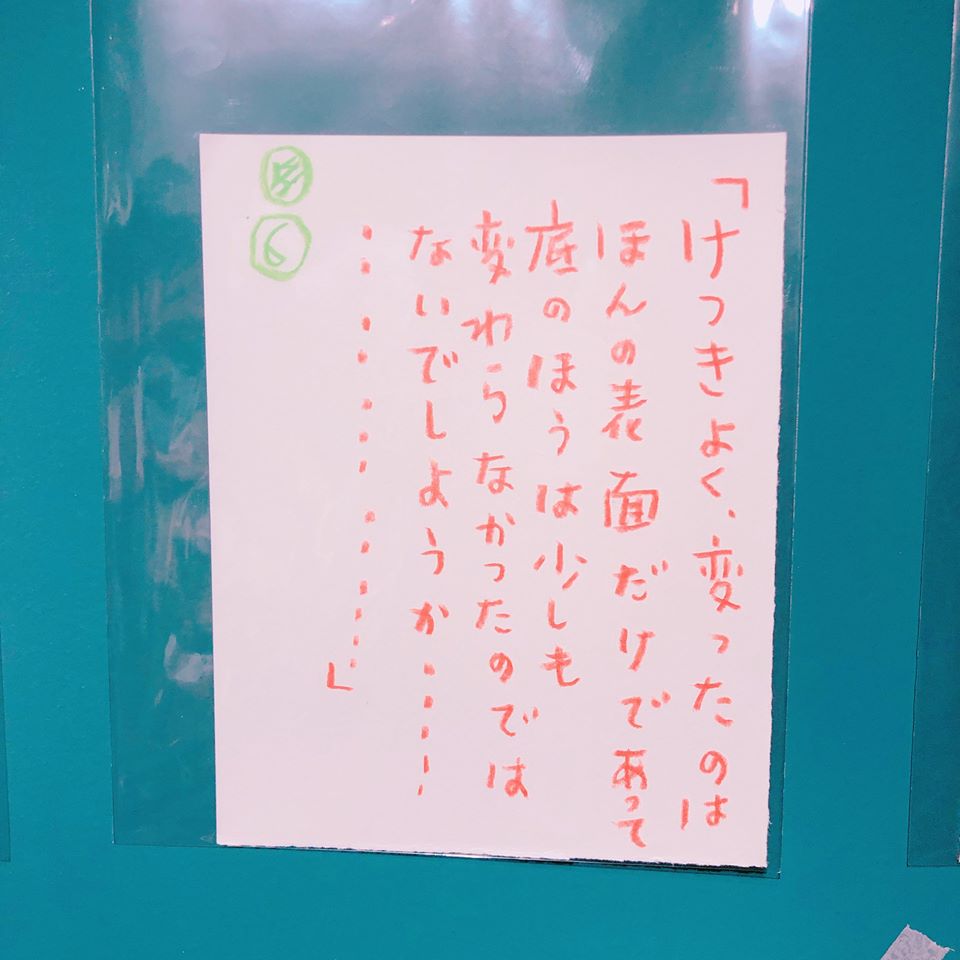 「けつきよく、変ったのは
ほんの表面だけであって
底のほうは少しも
変わらなかったのでは
ないでしようか・・・・・・
・・・・・・・・・・・・・・・・」
6